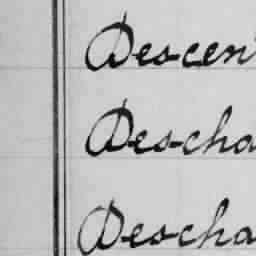 Descen
Descha
Descha